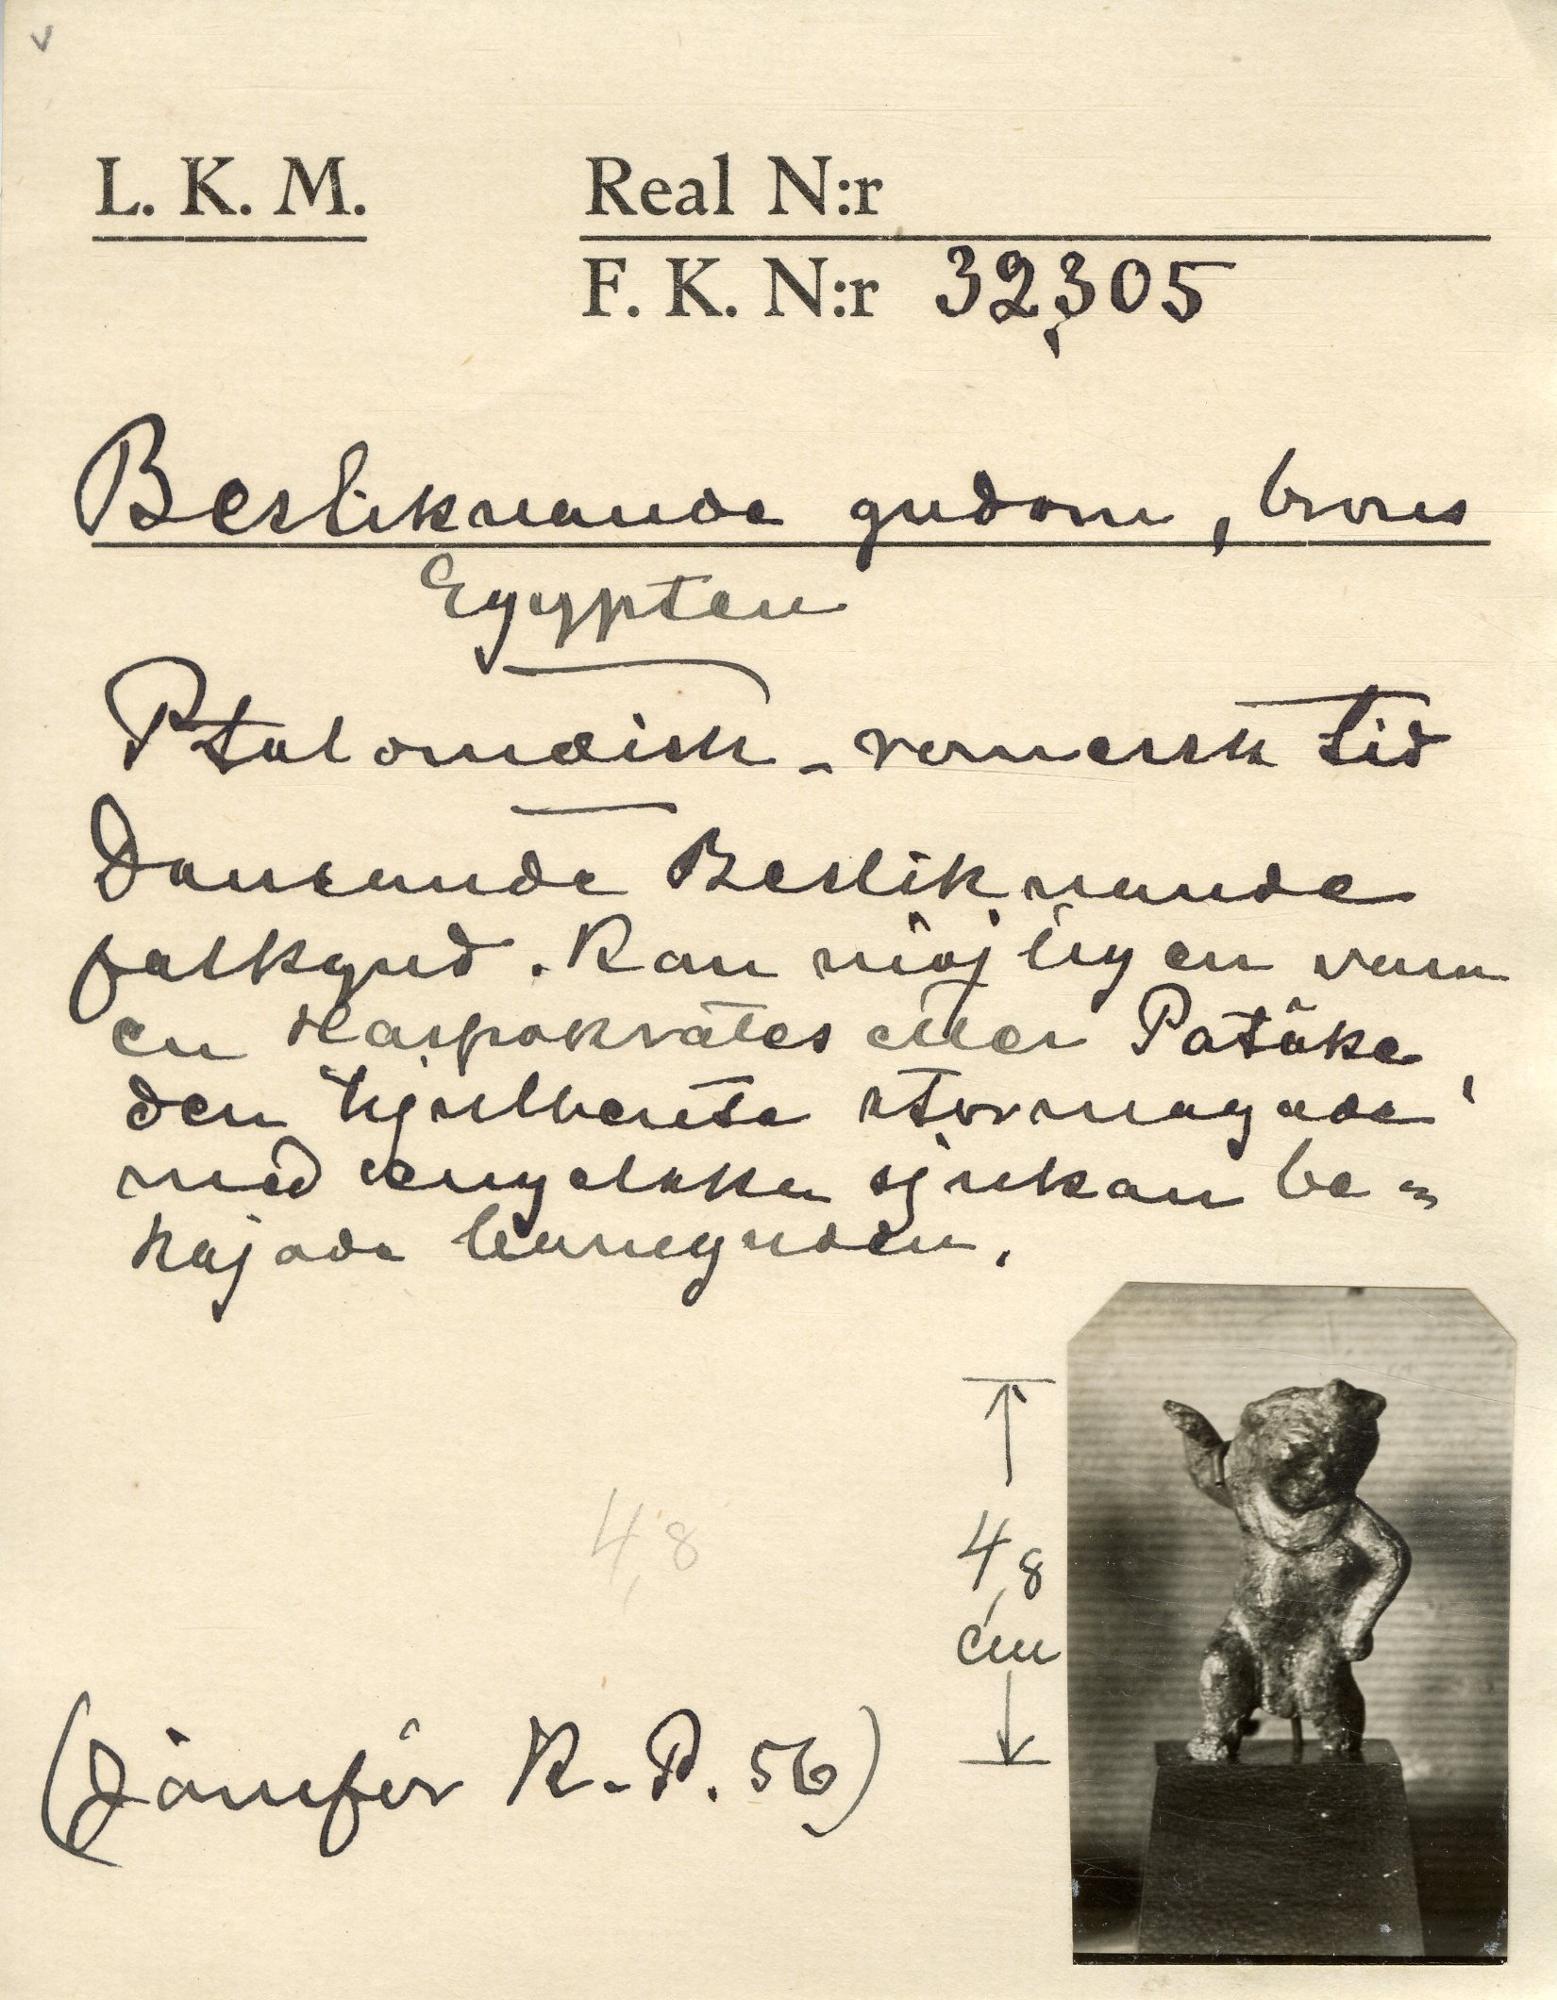 L. K. M.
Real N:r
F. K. N:r 32,305
Besliknande gudom, brons
Egypten
Ptolomæisk - romersk tid
Dansande Besliknande
folkgud. Kan möjligen vara
en Harpokrates eller Patäke,
den hjulbenta stormagade
med engelska sjukan be=
hajade barnguden.
4,8
4,8
cm
(Jämför K.-P. 56)